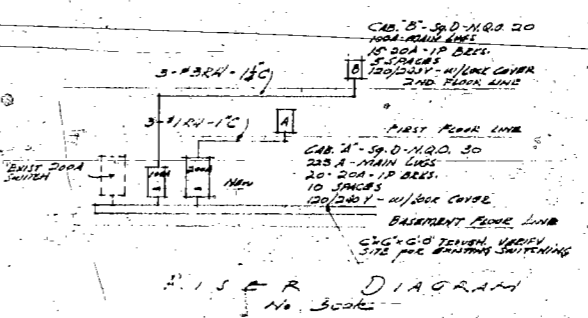 CAB. "B" - SQ. D - N.Q.O. 20
100A - MAIN LUGS
15-20A - 1P BKRS.
5 SPACES
120/240V - W/LOCK COVER
2ND FLOOR LINE
3-#3RH - 1¼"C
B
3-#1RH - 1"C
A
FIRST FLOOR LINE
CAB. "A" - SQ. D - N.Q.O. 30
225 A - MAIN LUGS
20-20A - 1P BKRS.
10 SPACES
120/240V - W/LOCK COVER
EXIST 200A
SWITCH
100A
200A
NEW
BASEMENT FLOOR LINE
6"x6"x6'-0" TROUGH. VERIFY
SITE FOR EXISTING SWITCHING
RISER DIAGRAM
No Scale